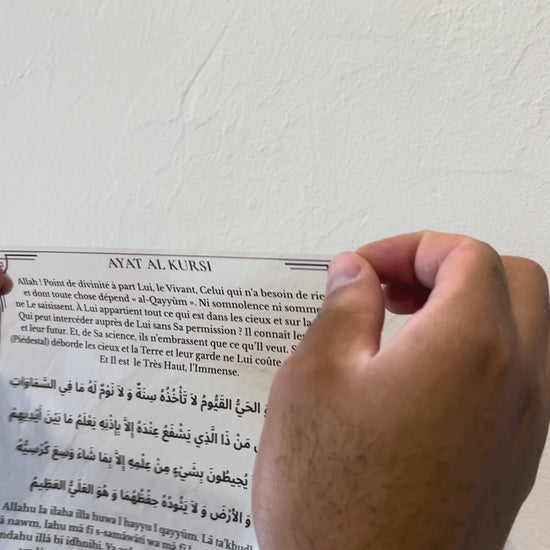 AYAT AL KURSI
Allah ! Point de divinité à part Lui, le Vivant, Celui qui n'a besoin de
et dont toute chose dépend « al-Qayyûm ». Ni somnolence ni
ne Le saisissent. À Lui appartient tout ce qui est dans les cieux et sur la
Qui peut intercéder auprès de Lui sans Sa permission ? Il connaît
et leur futur. Et, de Sa science, ils n'embrassent que ce qu'Il veut.
(Piédestal) déborde les cieux et la Terre et leur garde ne Lui coûte
Et Il est le Très Haut, l'Immense.
الحَيُّ القَيُّومُ لاَ تَأْخُذُهُ سِنَةٌ وَ لاَ نَوْمٌ لَهُ مَا فِي السَّمَاوَاتِ
مَنْ ذَا الَّذِي يَشْفَعُ عِنْدَهُ إِلاَّ بِإِذْنِهِ يَعْلَمُ مَا بَيْنَ أَيْدِيهِمْ
يُحِيطُونَ بِشَيْءٍ مِنْ عِلْمِهِ إِلاَّ بِمَا شَاءَ وَسِعَ كُرْسِيُّهُ
وَ الأَرْضَ وَ لاَ يَئُودُهُ حِفْظُهُمَا وَ هُوَ العَلِيُّ العَظِيمُ
Allahu la ilaha illa huwa l hayyu l qayyûm. Lâ
nawm, lahu mâ fî s-samâwâti wa mâ
illâ bi idhnihi.